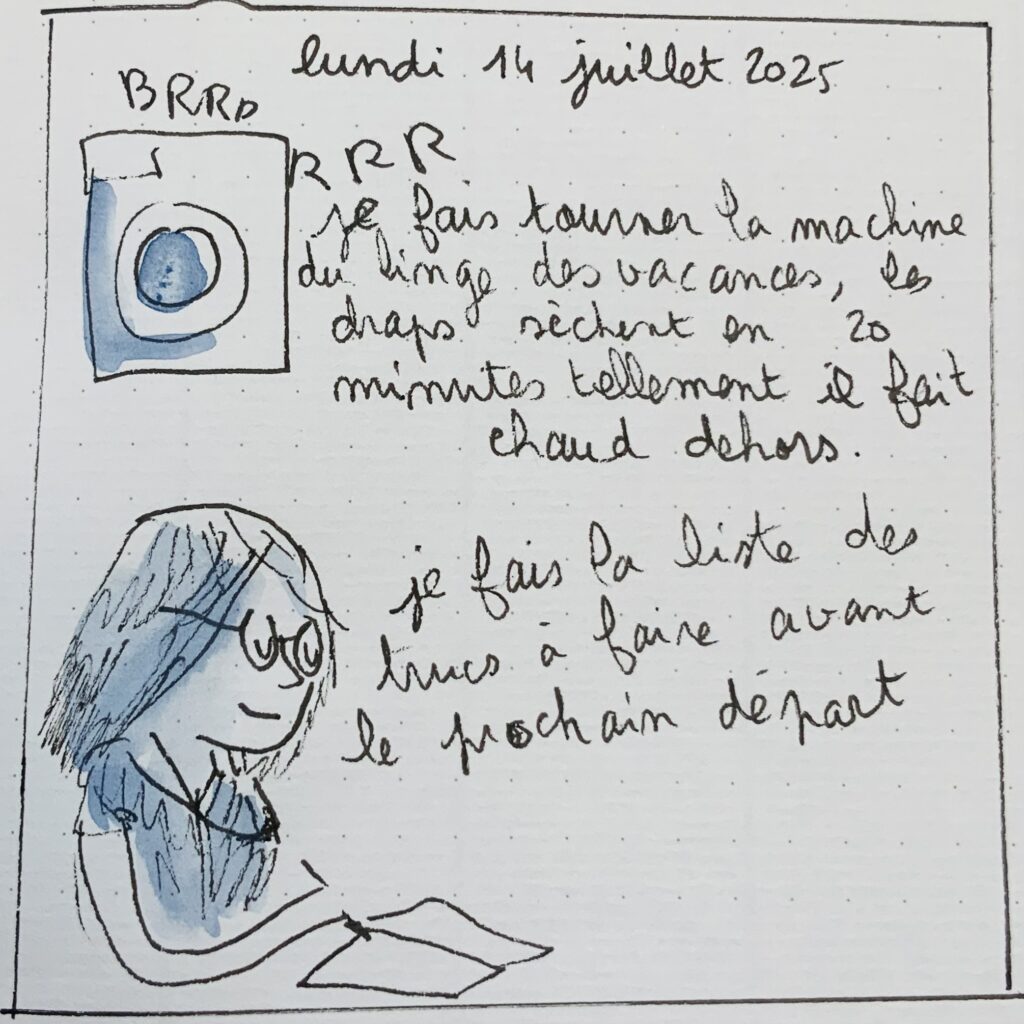 lundi 14 juillet 2025
BRRR
RRR
je fais tourner la machine
du linge des vacances, les
draps sèchent en 20
minutes tellement il fait
chaud dehors.
je fais la liste des
trucs à faire avant
le prochain départ